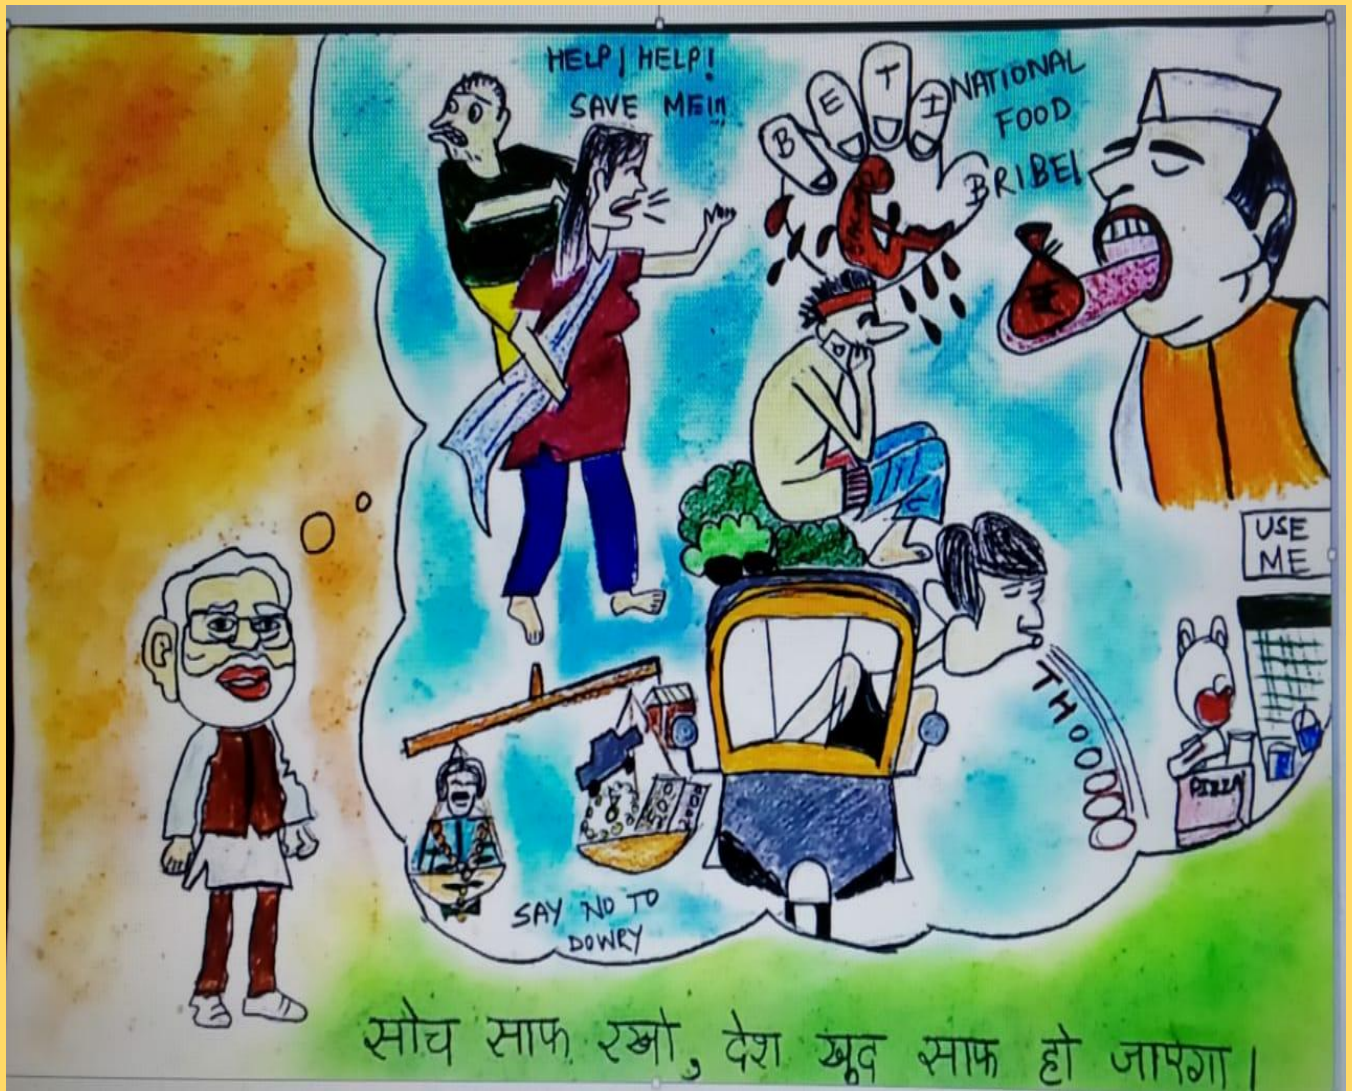 HELP! HELP!
SAVE ME!!!
BETI
NATIONAL
FOOD
BRIBE!
USE
ME
THOOOOOO
PIZZA
SAY NO TO
DOWRY
सोच साफ रखो, देश खुद साफ हो जाएगा।